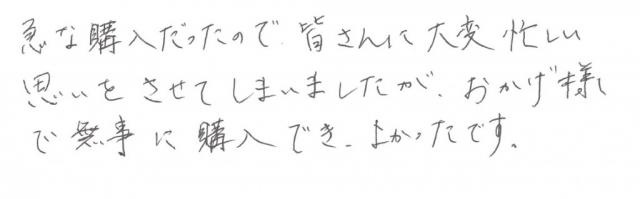 急な購入だったので、皆さんに大変忙しい
思いをさせてしまいましたが、おかげ様
で無事に購入でき、よかったです。